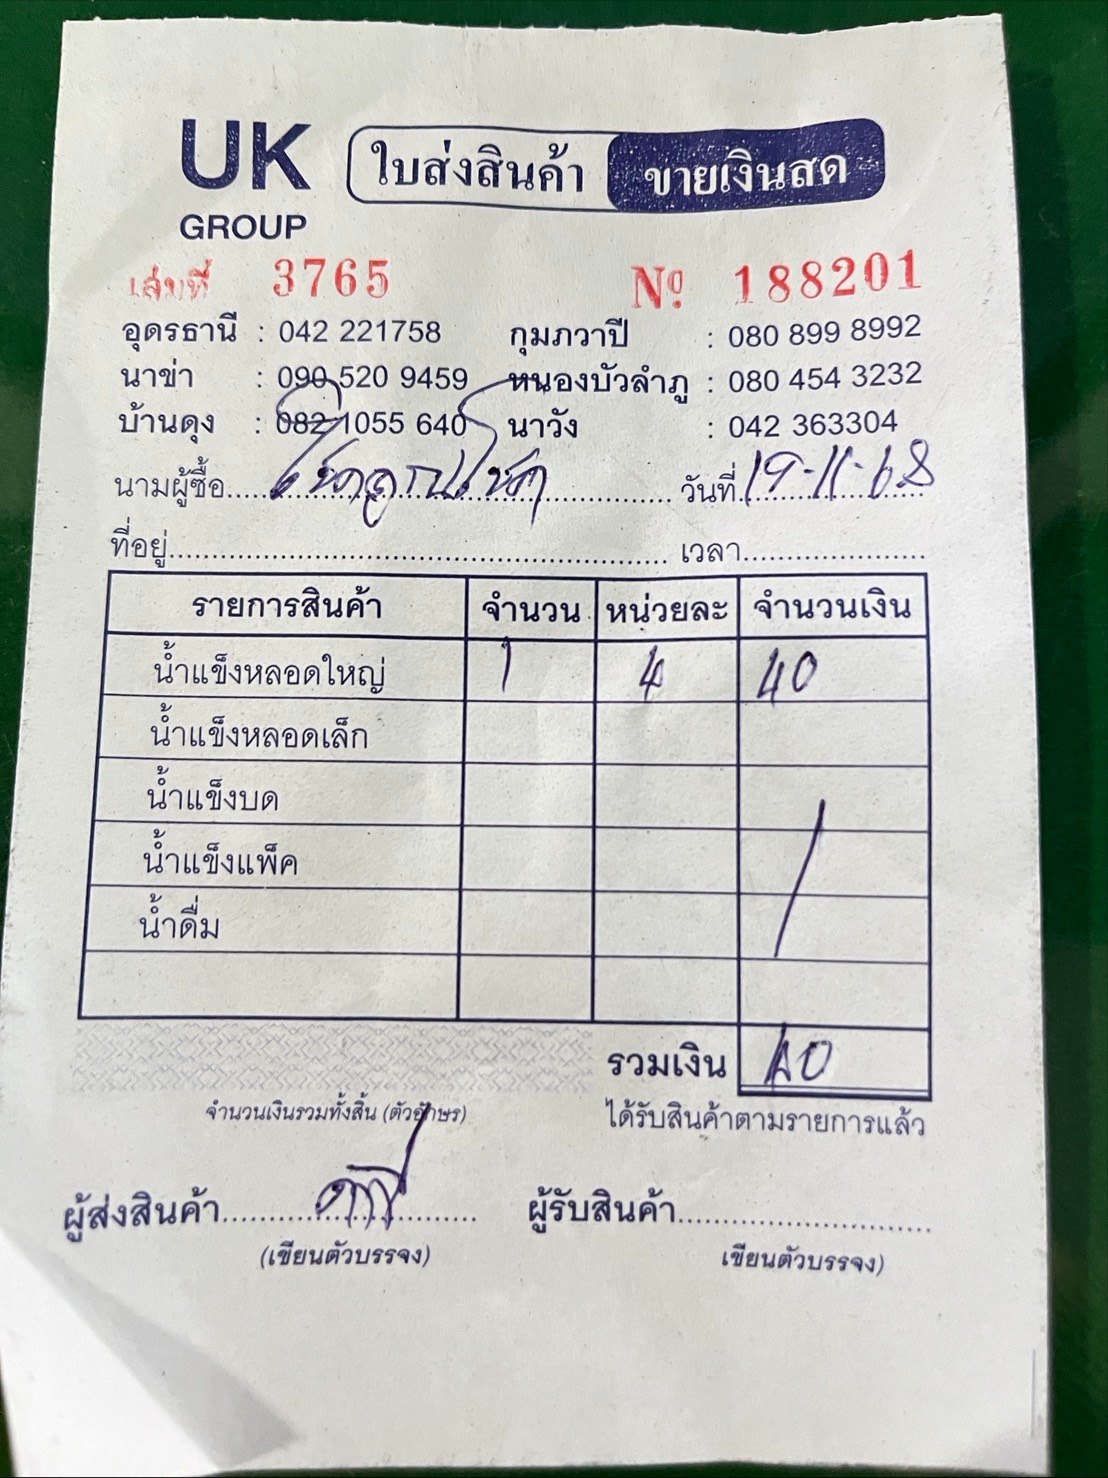 UK
GROUP
ใบส่งสินค้า ขายเงินสด
เล่มที่ 3765 Nº 188201
อุดรธานี : 042 221758 กุมภวาปี : 080 899 8992
นาข่า : 090 520 9459 หนองบัวลำภู : 080 454 3232
บ้านดุง : 082 1055 640 นาวัง : 042 363304
นามผู้ซื้อ วันที่ 19-11-68
ที่อยู่ เวลา
รายการสินค้า จำนวน หน่วยละ จำนวนเงิน
น้ำแข็งหลอดใหญ่ 1 4 40
น้ำแข็งหลอดเล็ก
น้ำแข็งบด
น้ำแข็งแพ็ค
น้ำดื่ม
รวมเงิน 40
จำนวนเงินรวมทั้งสิ้น (ตัวอักษร) ได้รับสินค้าตามรายการแล้ว
ผู้ส่งสินค้า ผู้รับสินค้า
(เขียนตัวบรรจง) เขียนตัวบรรจง)